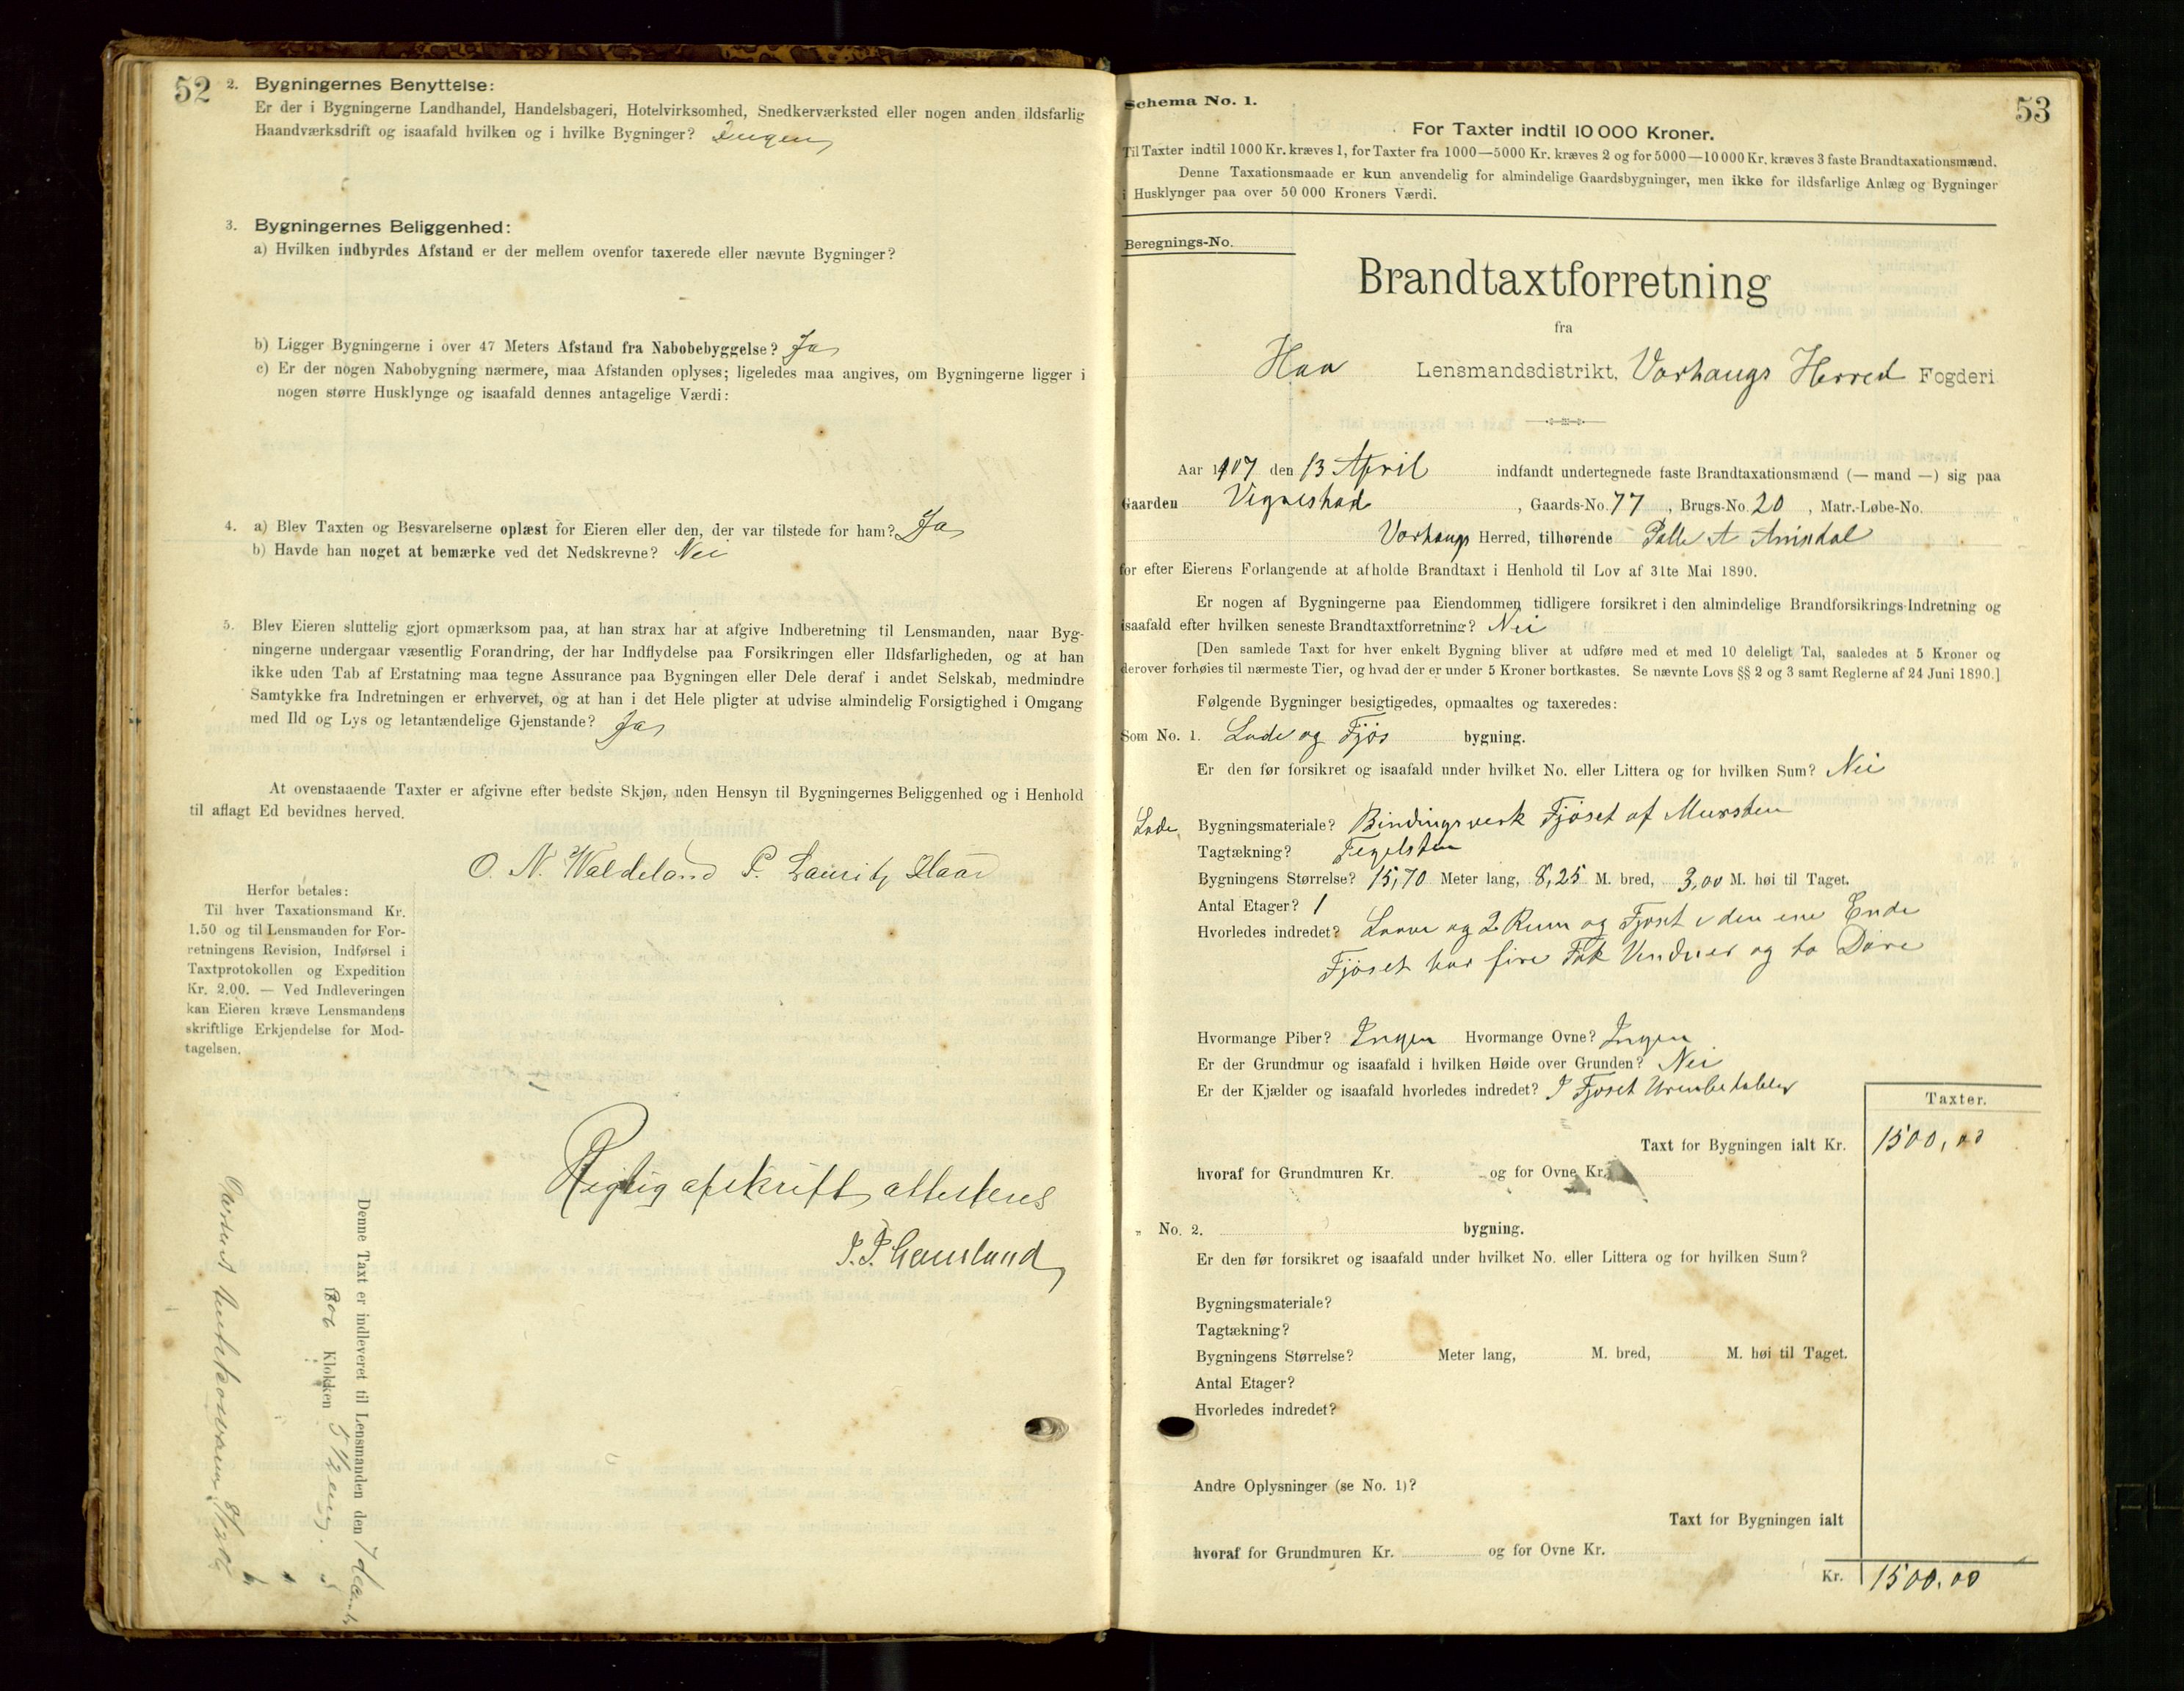 52
2. Bygningernes Benyttelse:
Er der i Bygningerne Landhandel, Handelsbageri, Hotelvirksomhed, Snedkerværksted eller nogen anden ildsfarlig
Haandværksdrift og isaafald hvilken og i hvilke Bygninger? Ingen
3. Bygningernes Beliggenhed:
a) Hvilken indbyrdes Afstand er der mellem ovenfor taxerede eller nævnte Bygninger?
b) Ligger Bygningerne i over 47 Meters Afstand fra Nabobebyggelse? Ja
c) Er der nogen Nabobygning nærmere, maa Afstanden oplyses; ligeledes maa angives, om Bygningerne ligger i
nogen større Husklynge og isaafald dennes antagelige Værdi:
4. a) Blev Taxten og Besvarelserne oplæst for Eieren eller den, der var tilstede for ham? Ja
b) Havde han noget at bemærke ved det Nedskrevne? Nei
5. Blev Eieren sluttelig gjort opmærksom paa, at han strax har at afgive Indberetning til Lensmanden, naar Byg-
ningerne undergaar væsentlig Forandring, der har Indflydelse paa Forsikringen eller Ildsfarligheden, og at han
ikke uden Tab af Erstatning maa tegne Assurance paa Bygningen eller Dele deraf i andet Selskab, medmindre
Samtykke fra Indretningen er erhvervet, og at han i det Hele pligter at udvise almindelig Forsigtighed i Omgang
med Ild og Lys og letantændelige Gjenstande? Ja
At ovenstaaende Taxter er afgivne efter bedste Skjøn, uden Hensyn til Bygningernes Beliggenhed og i Henhold
til aflagt Ed bevidnes herved.
O. N. Waldeland P. Lauritz Haar
Herfor betales:
Til hver Taxationsmand Kr.
1.50 og til Lensmanden for For-
retningens Revision, Indførsel i
Taxtprotokollen og Expedition
Kr. 2.00. — Ved Indleveringen
kan Eieren kræve Lensmandens
skriftlige Erkjendelse for Mod-
tagelsen.
Rigtig afskrift attesteres
Denne Taxt er indleveret til Lensmanden den 7
1906 Klokken 5 1/2
Schema No. 1.
53
For Taxter indtil 10 000 Kroner.
Til Taxter indtil 1000 Kr. kræves 1, for Taxter fra 1000—5000 Kr. kræves 2 og for 5000—10000 Kr. kræves 3 faste Brandtaxationsmænd.
Denne Taxationsmaade er kun anvendelig for almindelige Gaardsbygninger, men ikke for ildsfarlige Anlæg og Bygninger
i Husklynger paa over 50 000 Kroners Værdi.
Beregnings-No.
Brandtaxtforretning
fra
Haa Lensmandsdistrikt, Varhaugs Herred Fogderi
Aar 1907 den 13 April indfandt undertegnede faste Brandtaxationsmænd (— mand —) sig paa
Gaarden Vigrestad, Gaards-No. 77, Brugs-No. 20, Matr.-Løbe-No.
Varhaugs Herred, tilhørende Palle A
for efter Eierens Forlangende at afholde Brandtaxt i Henhold til Lov af 31te Mai 1890.
Er nogen af Bygningerne paa Eiendommen tidligere forsikret i den almindelige Brandforsikrings-Indretning og
isaafald efter hvilken seneste Brandtaxtforretning? Nei
[Den samlede Taxt for hver enkelt Bygning bliver at udføre med et med 10 deleligt Tal, saaledes at 5 Kroner og
derover forhøies til nærmeste Tier, og hvad der er under 5 Kroner bortkastes. Se nævnte Lovs §§ 2 og 3 samt Reglerne af 24 Juni 1890.]
Følgende Bygninger besigtigedes, opmaaltes og taxeredes:
Som No. 1. Lade og Fjøs bygning.
Er den før forsikret og isaafald under hvilket No. eller Littera og for hvilken Sum? Nei
Lade Bygningsmateriale? Bindingsverk Fjøset af Mursten
Tagtækning? Tegelsten
Bygningens Størrelse? 15,70 Meter lang, 8,25 M. bred, 3,00 M. høi til Taget.
Antal Etager? 1
Hvorledes indredet? Laave og 2 Rum og Fjøset i den ene Ende
Fjøset har fire Fak Vinduer og to Døre
Hvormange Piber? Ingen Hvormange Ovne? Ingen
Er der Grundmur og isaafald i hvilken Høide over Grunden? Nei
Er der Kjælder og isaafald hvorledes indredet? I Fjøset
Taxter.
Taxt for Bygningen ialt Kr. 1500,00
hvoraf for Grundmuren Kr. og for Ovne Kr.
„ No. 2. bygning.
Er den før forsikret og isaafald under hvilket No. eller Littera og for hvilken Sum?
Bygningsmateriale?
Tagtækning?
Bygningens Størrelse? Meter lang, M. bred, M. høi til Taget.
Antal Etager?
Hvorledes indredet?
Andre Oplysninger (se No. 1)?
Taxt for Bygningen ialt
hvoraf for Grundmuren Kr. og for Ovne Kr.
Kr. 1500.00